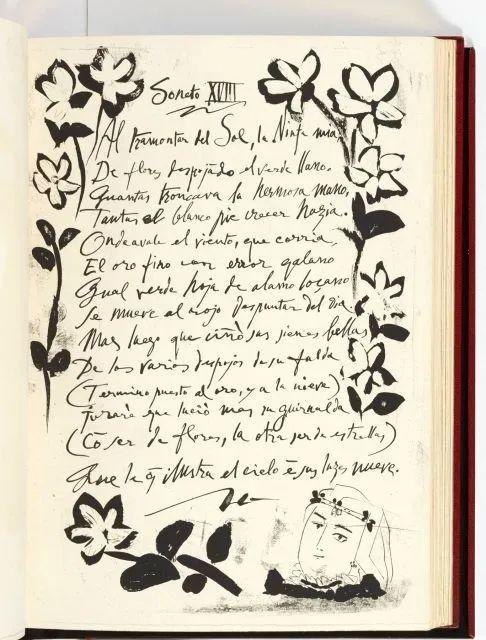 Soneto XVIII
Al tramontar del Sol, la Ninfa mia,
De flores despojando el verde llano.
Quantas troncava la hermosa mano,
Tantas el blanco pie crecer hazia.
Ondeavale el viento, que corria,
El oro fino con error galano
Qual verde hoja de alamo loçano
Se mueve al rojo despuntar del dia
Mas luego que ciñò sus sienes bellas
De los varios despojos de su falda
(Termino puesto al oro, y a la nieve)
Jurarè que luciò mas su guirnalda
(Cõ ser de flores, la otra ser de estrellas)
Que la q̃ illustra el cielo ẽ sus luzes nueve.